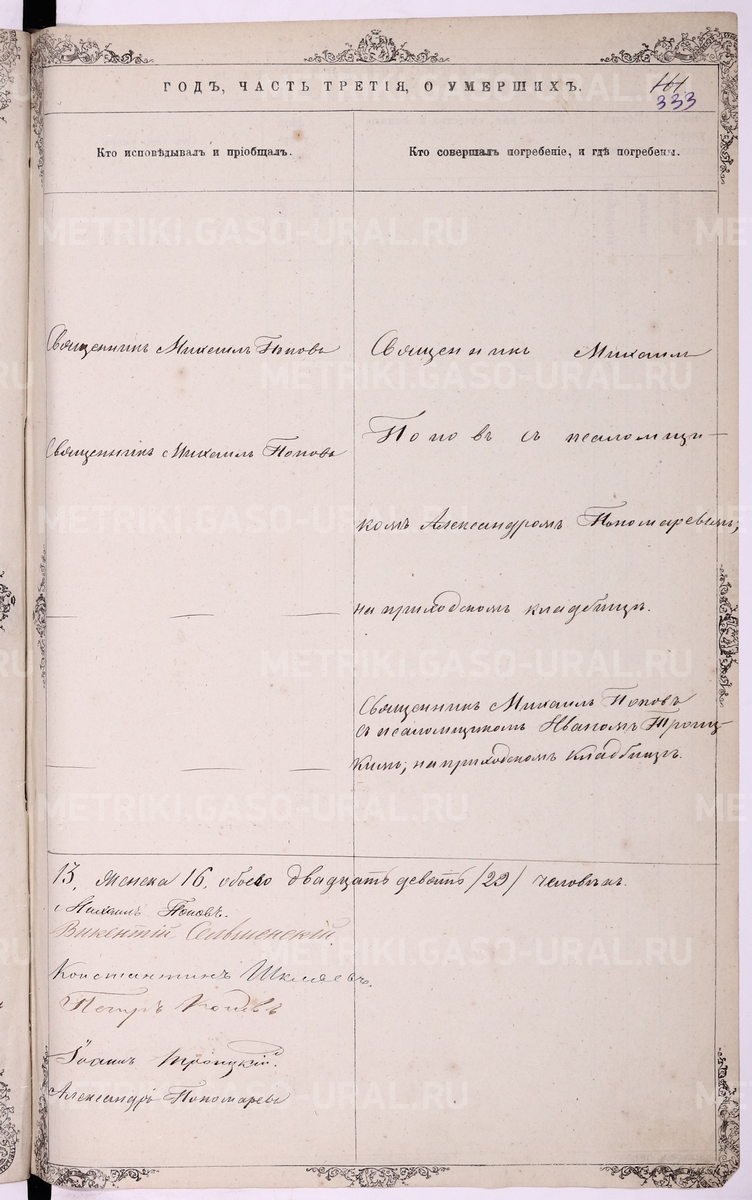 ГОДЪ, ЧАСТЬ ТРЕТІЯ, О УМЕРШИХЪ.
101
333
Кто исповѣдывалъ и пріобщалъ.
Кто совершалъ погребеніе, и гдѣ погребены.
Священникъ Михаилъ Поповъ
Священникъ Михаилъ Поповъ
Священникъ Михаилъ
Поповъ съ псаломщи-
комъ Александромъ Пономаревымъ;
на приходскомъ кладбищѣ.
Священникъ Михаилъ Поповъ
съ псаломщикомъ Иваномъ Троиц-
кимъ; на приходскомъ кладбищѣ.
13, женска 16, обоего двадцать девять /29/ человѣкъ.
Михаилъ Поповъ.
Викентій
Константинъ Шкляевъ.
Петръ
Іоаннъ Троицкій.
Александръ Пономаревъ
METRIKI.GASO-URAL.RU